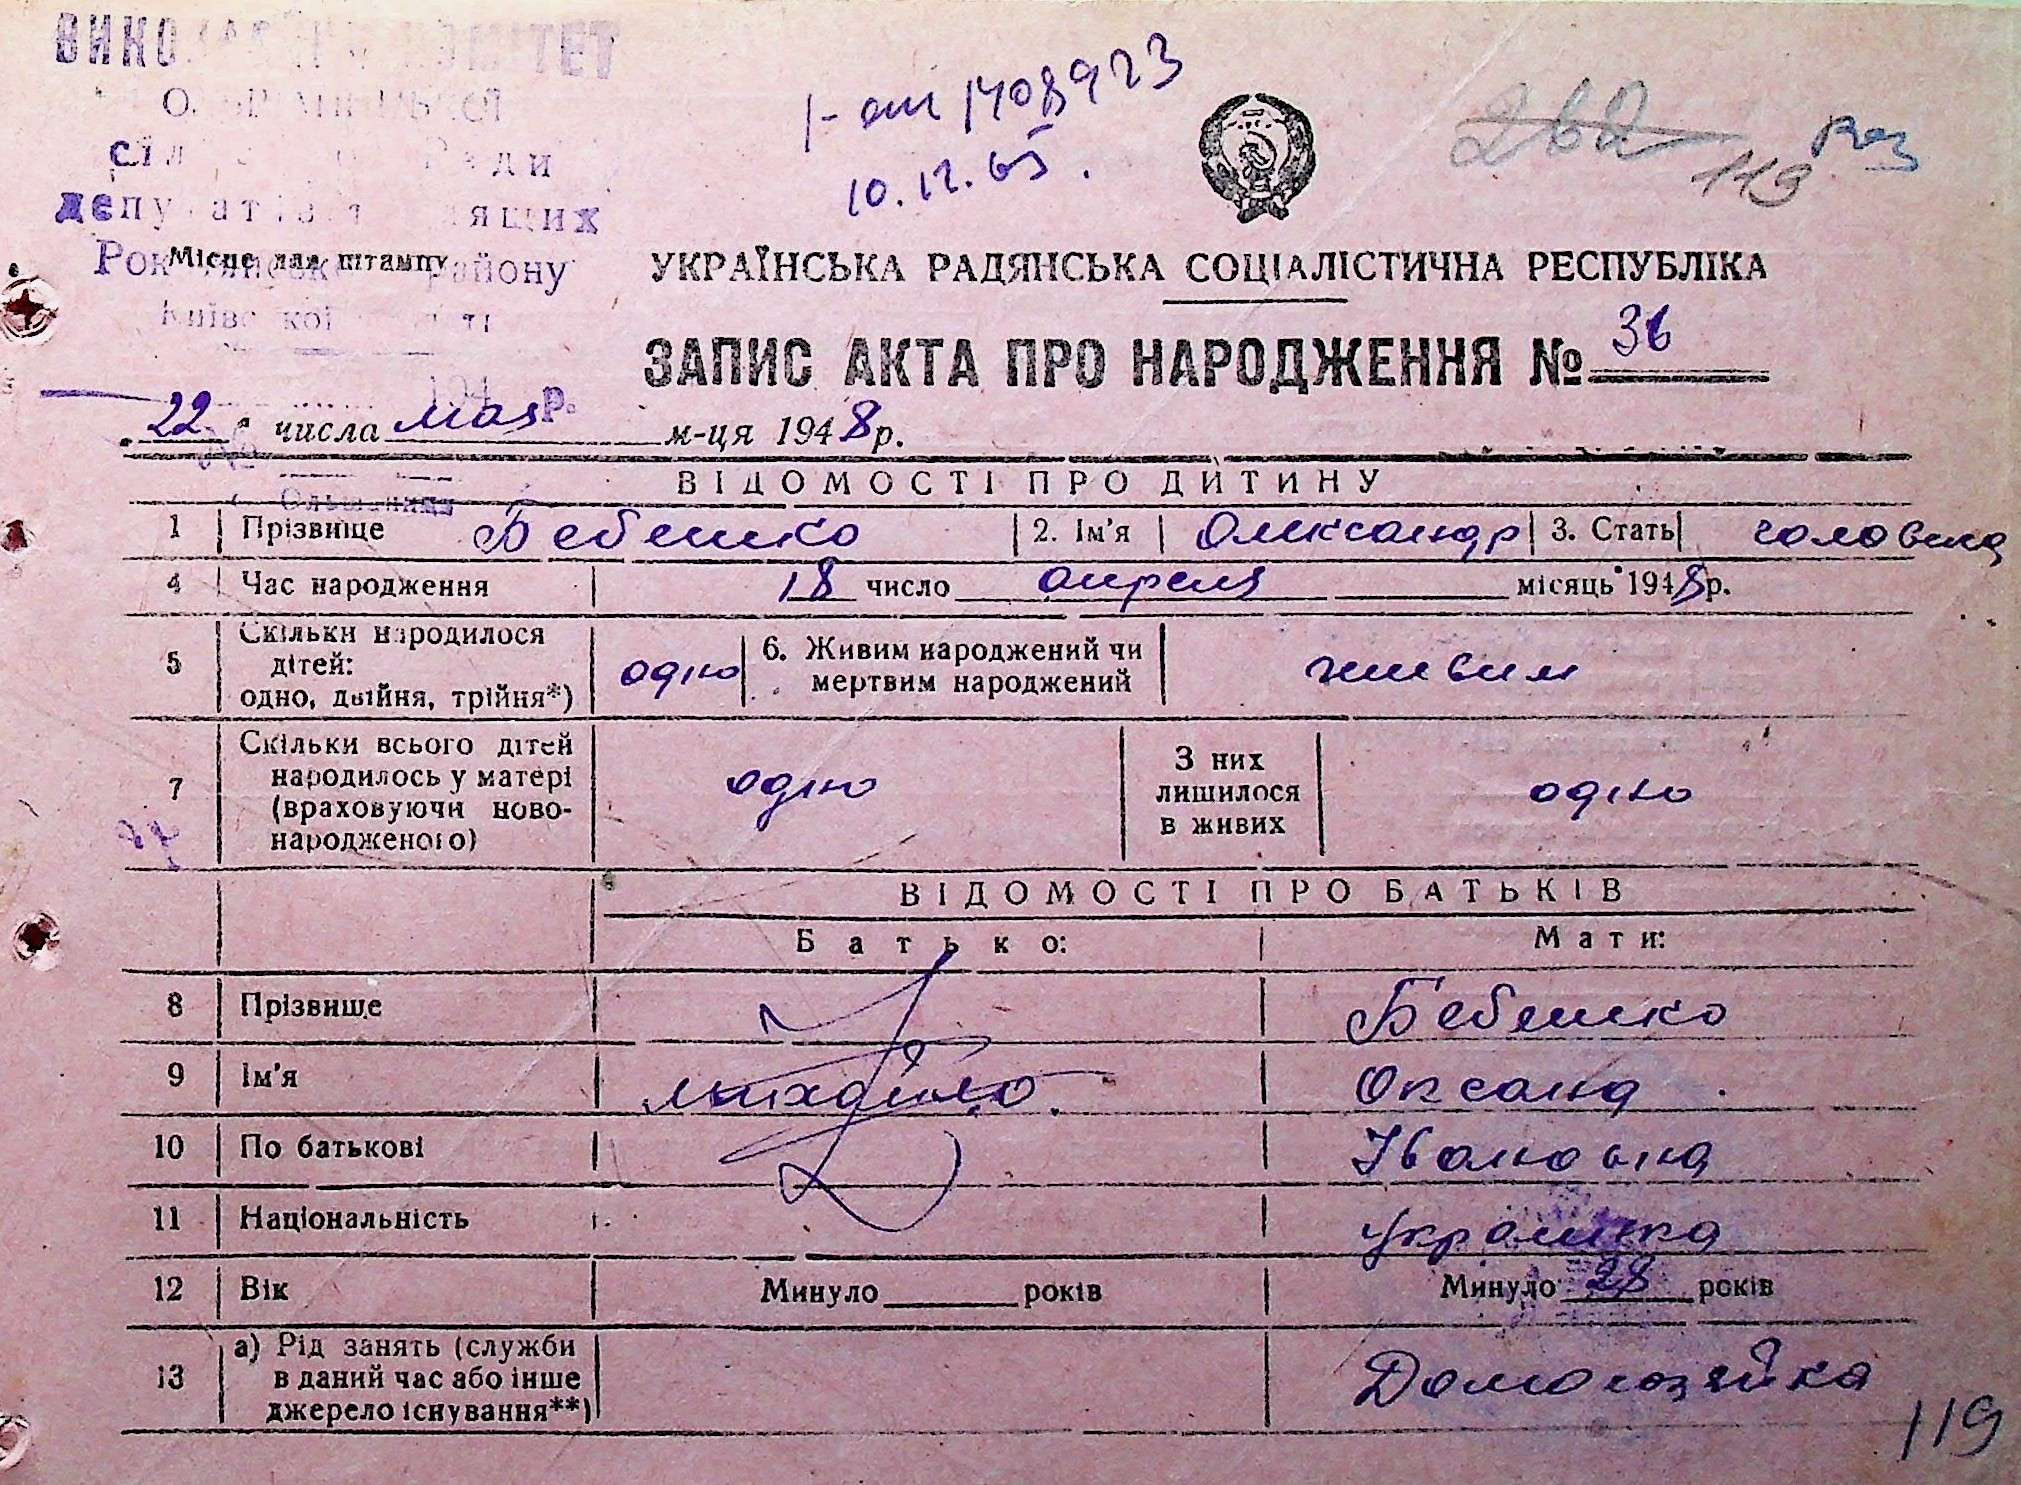 ВИКО КОМІТЕТ
депутатів трудящих
району
Місце для штампу
І-ом 1408923
10.12.65.
262
119
УКРАЇНСЬКА РАДЯНСЬКА СОЦІАЛІСТИЧНА РЕСПУБЛІКА
ЗАПИС АКТА ПРО НАРОДЖЕННЯ № 36
„22“ числа мая м-ця 1948 р.
ВІДОМОСТІ ПРО ДИТИНУ
1 Прізвище Бебешко 2. Ім'я Олександр 3. Стать чоловича
4 Час народження 18 число апреля місяць 1948 р.
5 Скільки народилося дітей: одно, двійня, трійня*) одно 6. Живим народжений чи мертвим народжений живим
7 Скільки всього дітей народилось у матері (враховуючи новонародженого) одно З них лишилося в живих одно
ВІДОМОСТІ ПРО БАТЬКІВ
Батько: Мати:
8 Прізвище Бебешко
9 Ім'я Михайло. Оксана
10 По батькові Івановна
11 Національність українка
12 Вік Минуло років Минуло 28 років
13 а) Рід занять (служби в даний час або інше джерело існування**) Домохозяйка
119